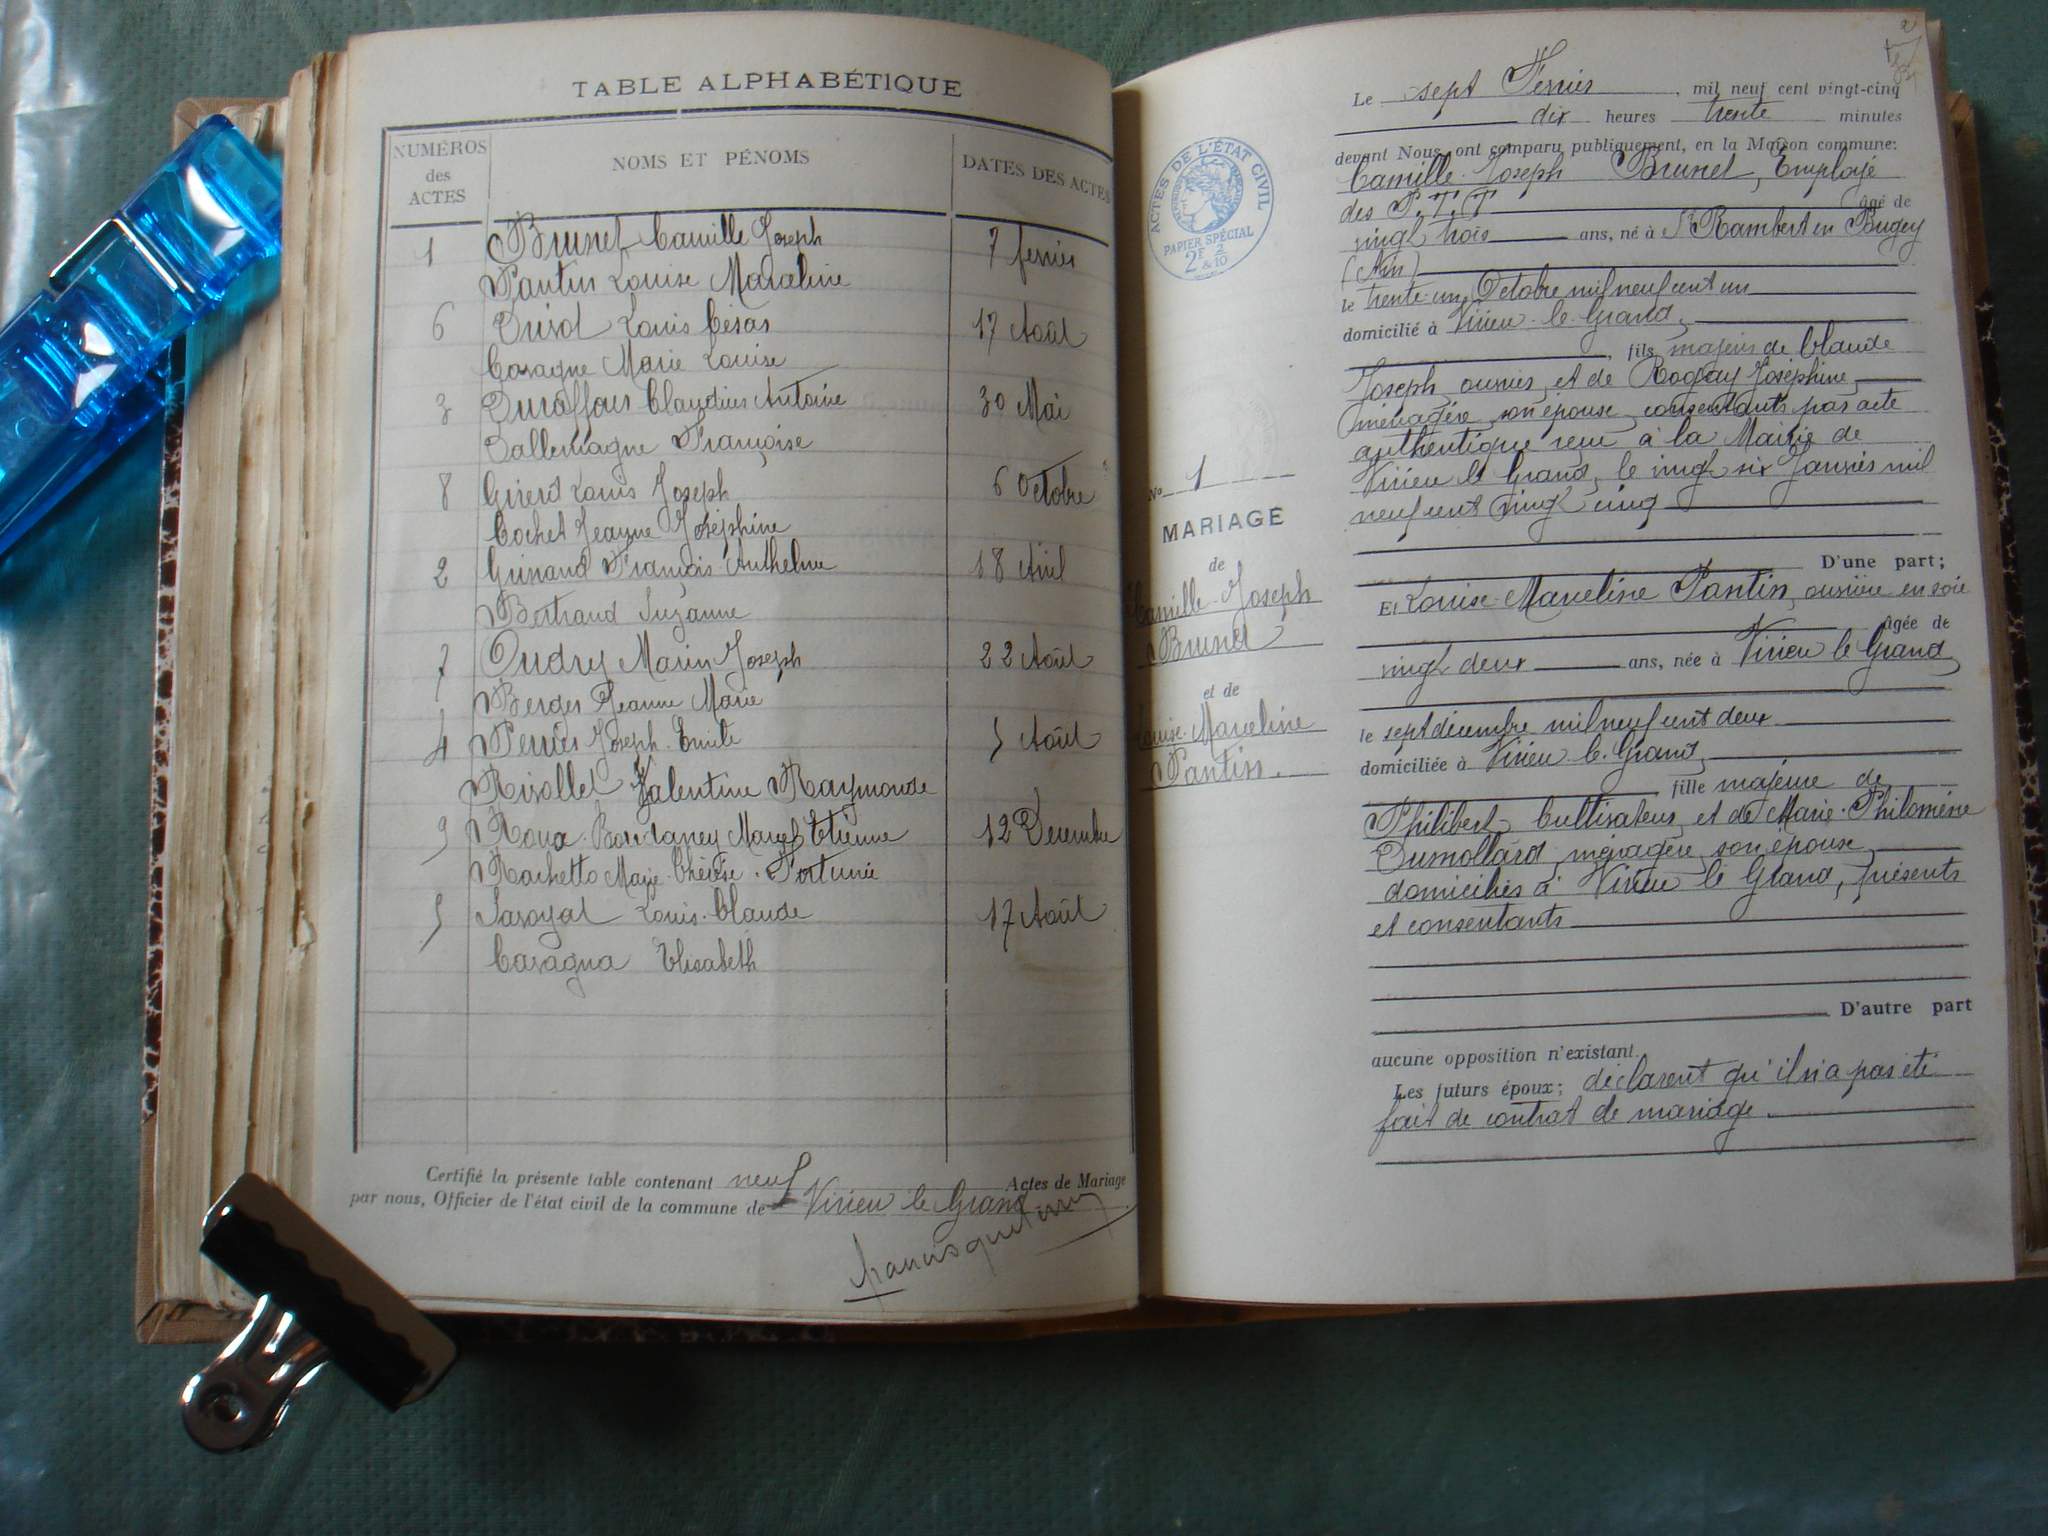 TABLE ALPHABÉTIQUE
NUMÉROS des ACTES
NOMS ET PÉNOMS
DATES DES ACTES
1 Brunet Camille Joseph 7 fevrier
Pantin Louise Marceline
6 Duisot Louis César 17 Août
Casagne Marie Louise
3 Duraffour Claudius Antoine 30 Mai
Dallemagne Françoise
8 Girerd Louis Joseph 6 Octobre
Cochet Jeanne Joséphine
2 Guinand François Anthelme 18 Avril
Bertrand Suzanne
7 Oudry Marin Joseph 22 Août
Berger Jeanne Marie
4 Perrier Joseph Emile 5 Août
Rivollet Valentine Raymonde
9 Roux Marcel Etienne 12 Decembre
Rachetto Marie Thérèse Fortunée
5 Savoyat Louis Claude 17 Août
Casagna Elisabeth
Certifié la présente table contenant neuf Actes de Mariage
par nous, Officier de l'état civil de la commune de Virieu le Grand
ACTES DE L'ÉTAT CIVIL
PAPIER SPÉCIAL
2F & 2/10
No 1
MARIAGE
de
Camille Joseph
Brunet
et de
Louise Marceline
Pantin.
Le sept Fevrier, mil neuf cent vingt-cinq
dix heures trente minutes
devant Nous ont comparu publiquement, en la Maison commune:
Camille Joseph Brunet, Employé
des P.T.T âgé de
vingt trois ans, né à St Rambert en Bugey
(Ain)
le trente-un Octobre mil neuf cent un
domicilié à Virieu-le-Grand,
, fils majeur de Claude
Joseph, ouvrier, et de Joséphine,
ménagère, son épouse, consentants par acte
authentique reçu à la Mairie de
Virieu le Grand, le vingt six Janvier mil
neuf cent vingt cinq
D'une part;
Et Louise Marceline Pantin, ouvrière en soie
âgée de
vingt deux ans, née à Virieu le Grand,
le sept décembre mil neuf cent deux
domiciliée à Virieu-le-Grand,
, fille majeure de
Philibert, Cultivateur, et de Marie-Philomène
Dumollard, ménagère, son épouse,
domiciliés à Virieu le Grand, présents
et consentants
D'autre part
aucune opposition n'existant.
Les futurs époux; déclarent qu'il n'a pas été
fait de contrat de mariage.